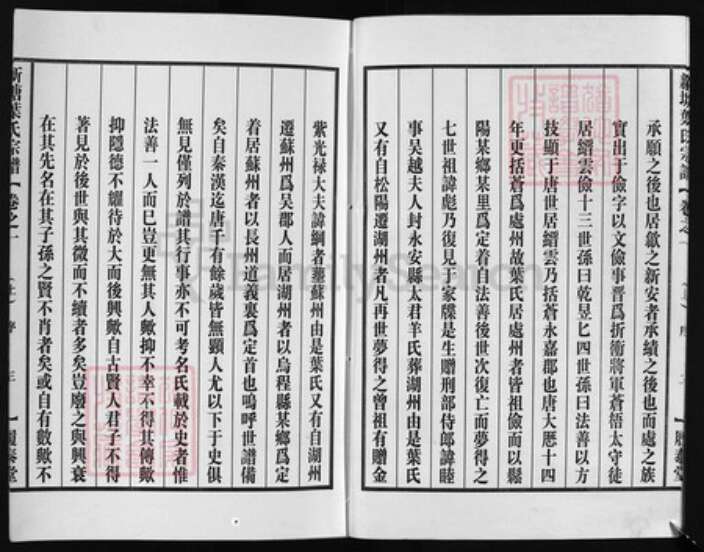 承願之後也居歙之新安者承績之後也而處之族
實出于儉字以文儉事晉爲折衝將軍蒼梧太守徒
居縉雲儉十三世孫曰乾昱匕四世孫曰法善以方
技顯于唐世居縉雲乃括蒼永嘉郡也唐大厯十四
年更括蒼爲處州故葉氏居處州者皆祖儉而以鬆
陽某鄉某里爲定着自法善後世次復亡而夢得之
七世祖諱彪乃復見于家牒是生贈刑部侍郎諱睦
事吴越夫人封永安縣太君羊氏葬湖州由是葉氏
又有自松陽遷湖州者凡再世夢得之曾祖有贈金
履泰堂
紫光禄大夫諱綱者塟蘇州由是葉氏又有自湖州
遷蘇州爲吴郡人而居湖州者以烏程縣某鄉爲定
着居蘇州者以長州道義裏爲定首也嗚呼世譜備
矣自秦漢迄唐千有餘歲皆無顯人尤以下于史俱
無見僅列於譜其行事亦不可考名氏載於史者惟
法善一人而巳豈更無其人歟抑不幸不得其傳歟
抑隱德不耀待於大而後興歟自古賢人君子不得
著見於後世與其微而不續者多矣豈廢之與興衰
在其先名在其子孫之賢不肖者矣或自有數歟不
新塘葉氏宗譜【卷之一
序
三
】履泰堂
FamilySearch